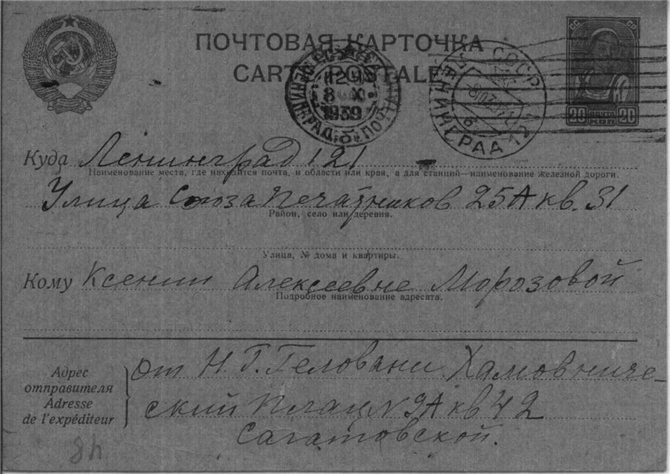 ПОЧТОВАЯ КАРТОЧКА
CARTE POSTALE
12
8 XI
1939
СССР
ЛЕНИНГРАД 121
20 ПОЧТА КОП. 20
Куда Ленинград 121
Наименование места, где находится почта, и области или края, а для станций—наименование железной дороги.
Улица Союза Печатников 25А кв. 31
Район, село или деревня.
Улица, № дома и квартиры.
Кому Ксении Алексеевне Морозовой
Подробное наименование адресата.
Адрес
отправителя
Adresse
de l'expéditeur
От Н. Г. Геловани Хамовниче-
ский Плац N 2А кв 42
Сагатовской.
48